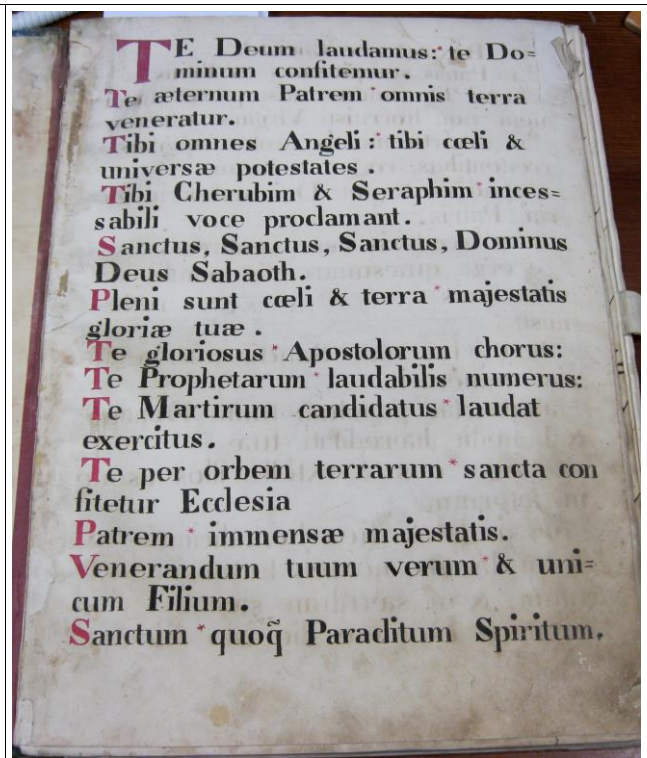 TE Deum laudamus:* te Do=
minum confitemur.
Te æternum Patrem * omnis terra
veneratur.
Tibi omnes Angeli :* tibi cœli &
universæ potestates .
Tibi Cherubim & Seraphim * inces=
sabili voce proclamant.
Sanctus, Sanctus, Sanctus, Dominus
Deus Sabaoth.
Pleni sunt cœli & terra * majestatis
gloriæ tuæ .
Te gloriosus * Apostolorum chorus:
Te Prophetarum * laudabilis numerus:
Te Martirum candidatus * laudat
exercitus.
Te per orbem terrarum * sancta con
fitetur Ecclesia
Patrem * immensæ majestatis.
Venerandum tuum verum * & uni=
cum Filium.
Sanctum * quoq̃ Paraclitum Spiritum.